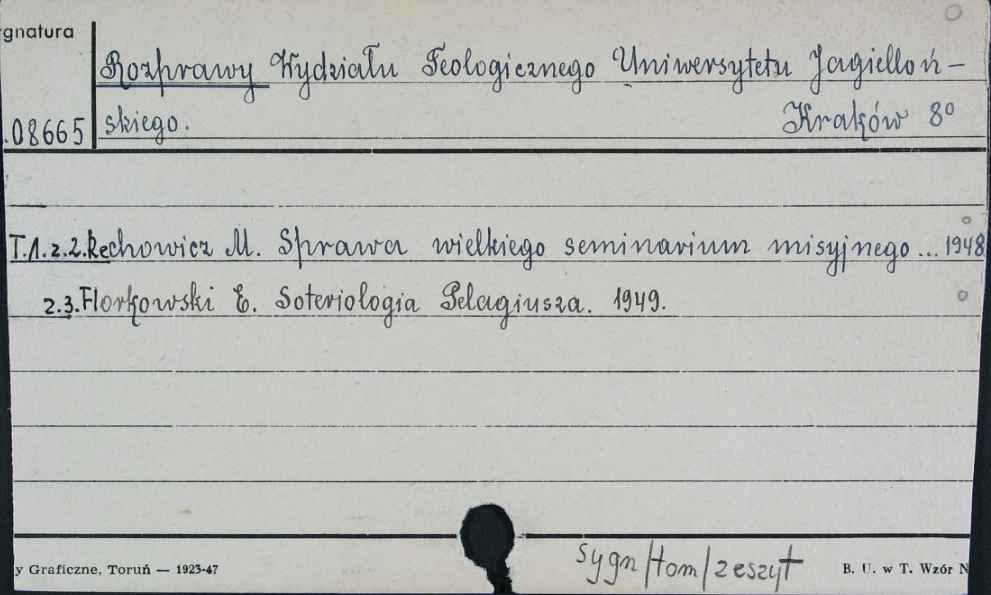 gnatura
Rozprawy Wydziału Teologicznego Uniwersytetu Jagielloń-
.08665 skiego. Kraków 8°
T.1.z.2.Rechowicz M. Sprawa wielkiego seminarium misyjnego ... 1948
z.3.Florkowski E. Soteriologia Pelagiusza. 1949.
sygn/tom/zeszyt
y Graficzne, Toruń — 1923-47 B. U. w T. Wzór N